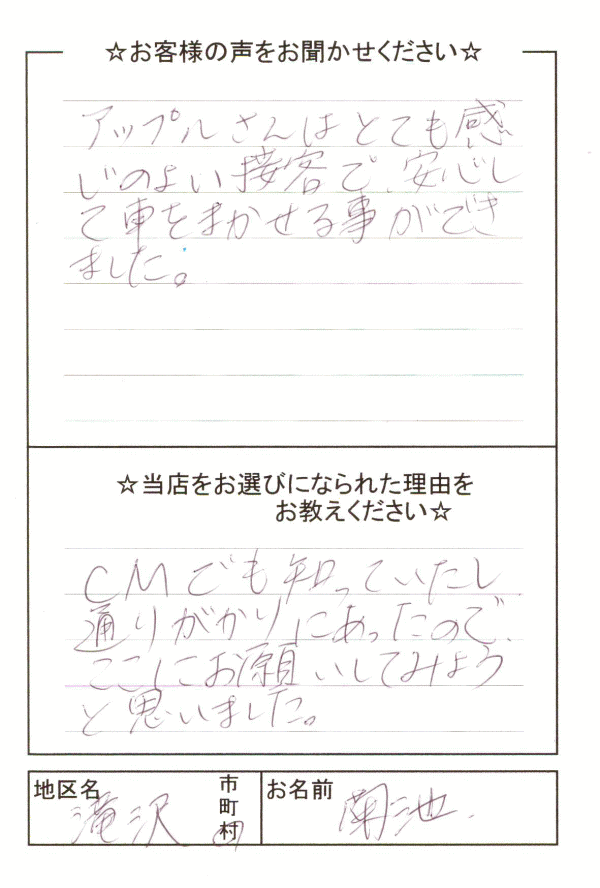 ☆お客様の声をお聞かせください☆
アップルさんはとても感
じのよい接客で、安心し
て車をまかせる事ができ
ました。
☆当店をお選びになられた理由を
お教えください☆
CMでも知っていたし
通りがかりにあったので、
ここにお願いしてみよう
と思いました。
地区名 滝沢 市町村
お名前 菊池